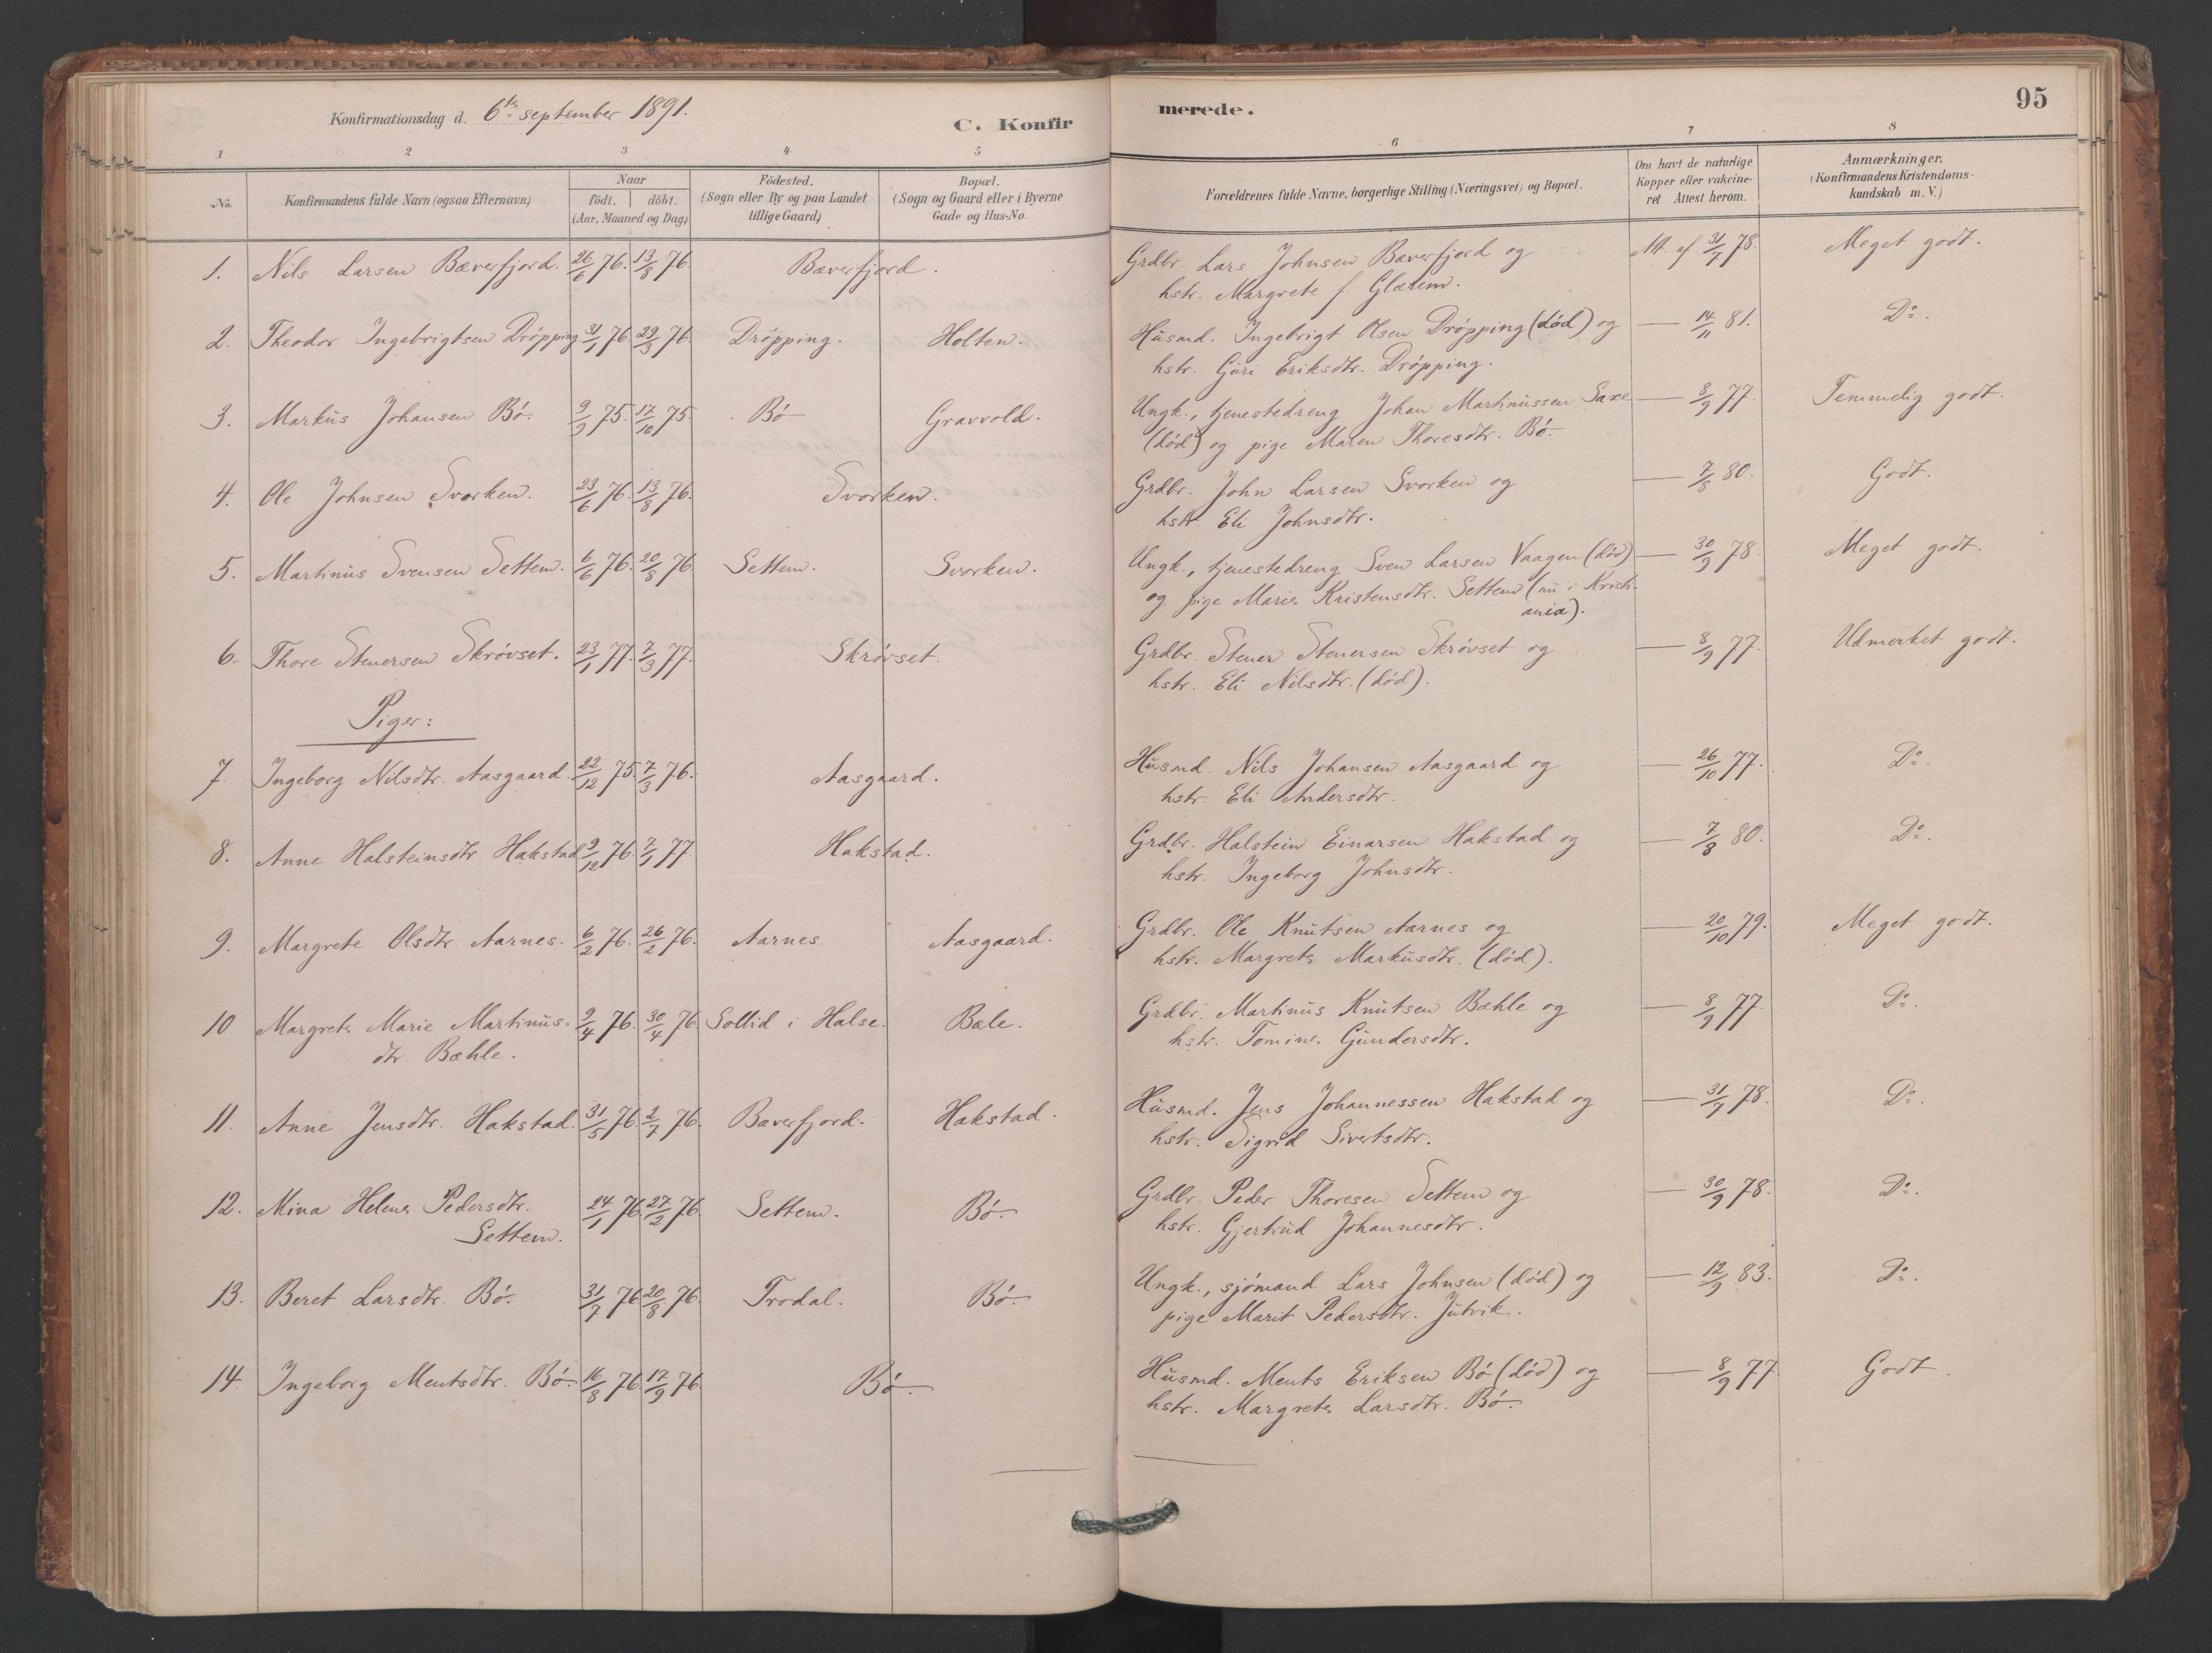 Konfirmationsdag d. 6te september 1891.
C. Konfirmerede.
95
1 2 3 4 5 6 7 8
No.
Konfirmandens fulde Navn (ogsaa Efternavn)
Naar
födt. döbt.
(Aar, Maaned og Dag)
Födested.
(Sogn eller By og paa Landet
tillige Gaard)
Bopæl.
(Sogn og Gaard eller i Byerne
Gade og Hus-No.
Forældrenes fulde Navne, borgerlige Stilling (Næringsvei) og Bopæl.
Om havt de naturlige
Kopper eller vakcine-
ret Attest herom.
Anmærkninger.
(Konfirmandens Kristendoms-
kundskab m. V.)
1. Nils Larsen Bæverfjord. 26/6 76. 13/8 76. Bæverfjord. Grdbr. Lars Johnsen Bæverfjord og Att. af 31/7 78. Meget godt.
hstr. Margrete f. Glærem.
2. Theodor Ingebrigtsen Drøpping 31/1 76. 29/3 76. Drøpping. Holten. Husmd. Ingebrigt Olsen Drøpping (død) og — 14/11 81. Do.
hstr. Guri Eriksdtr. Drøpping.
3. Markus Johansen Bø. 9/9 75. 17/10 75. Bø Gravvold. Ungk., tjenestedreng Johan Martinussen Saxe — 8/9 77. Temmelig godt.
(død) og pige Maren Thoresdtr. Bø.
4. Ole Johnsen Svorken. 23/6 76. 13/8 76. Svorken. Grdbr. John Larsen Svorken og — 7/8 80. Godt.
hstr. Eli Johnsdtr.
5. Martinus Svensen Settem. 6/6 76. 20/8 76. Settem. Svorken. Ungk., tjenestedreng Sven Larsen Vaagen (død) — 30/9 78. Meget godt.
og pige Marie Kristensdtr. Settem (nu i Kristi-
ania).
6. Thore Stenersen Skrøvset. 23/1 77. 7/3 77. Skrøvset. Grdbr. Stener Stenersen Skrøvset og — 8/9 77. Udmerket godt.
hstr. Eli Nilsdtr. (død).
Piger:
7. Ingeborg Nilsdtr. Aasgaard. 22/12 75. 7/3 76. Aasgaard. Husmd. Nils Johansen Aasgaard og — 26/10 77. Do.
hstr. Eli Andersdtr.
8. Anne Halsteinsdtr Hakstad 9/12 76. 7/1 77. Hakstad. Grdbr. Halstein Einarsen Hakstad og — 7/8 80. Do.
hstr. Ingeborg Johnsdtr.
9. Margrete Olsdtr Aarnes. 6/2 76. 26/2 76. Aarnes. Aasgaard. Grdbr. Ole Knutsen Aarnes og — 20/10 79. Meget godt.
hstr. Margrete Markusdtr. (død).
10. Margrete Marie Martinus- 9/4 76. 30/4 76. Sollid i Halse. Bæle. Grdbr. Martinus Knutsen Bæhle og — 8/9 77. Do.
dtr. Bæhle. hstr. Tomine Gundersdtr.
11. Anne Jensdtr. Hakstad. 31/5 76. 2/7 76. Bæverfjord. Hakstad. Husmd. Jens Johannessen Hakstad og — 31/7 78. Do.
hstr. Sigrid Sivertsdtr.
12. Mina Helene Pedersdtr. 24/1 76. 27/2 76. Settem. Bø. Grdbr. Peder Thoresen Settem og — 30/9 78. Do.
Settem. hstr. Gjertrud Johannesdtr.
13. Beret Larsdtr. Bø. 31/7 76. 20/8 76. Trodal. Bø. Ungk., sjømand Lars Johnsen (død) og — 12/9 83. Do.
pige Marit Pedersdtr. Jutvik.
14. Ingeborg Mentsdtr. Bø. 16/8 76. 17/9 76. Bø. Husmd. Ments Eriksen Bø (død) og — 8/9 77. Godt.
hstr. Margrete Larsdtr. Bø.